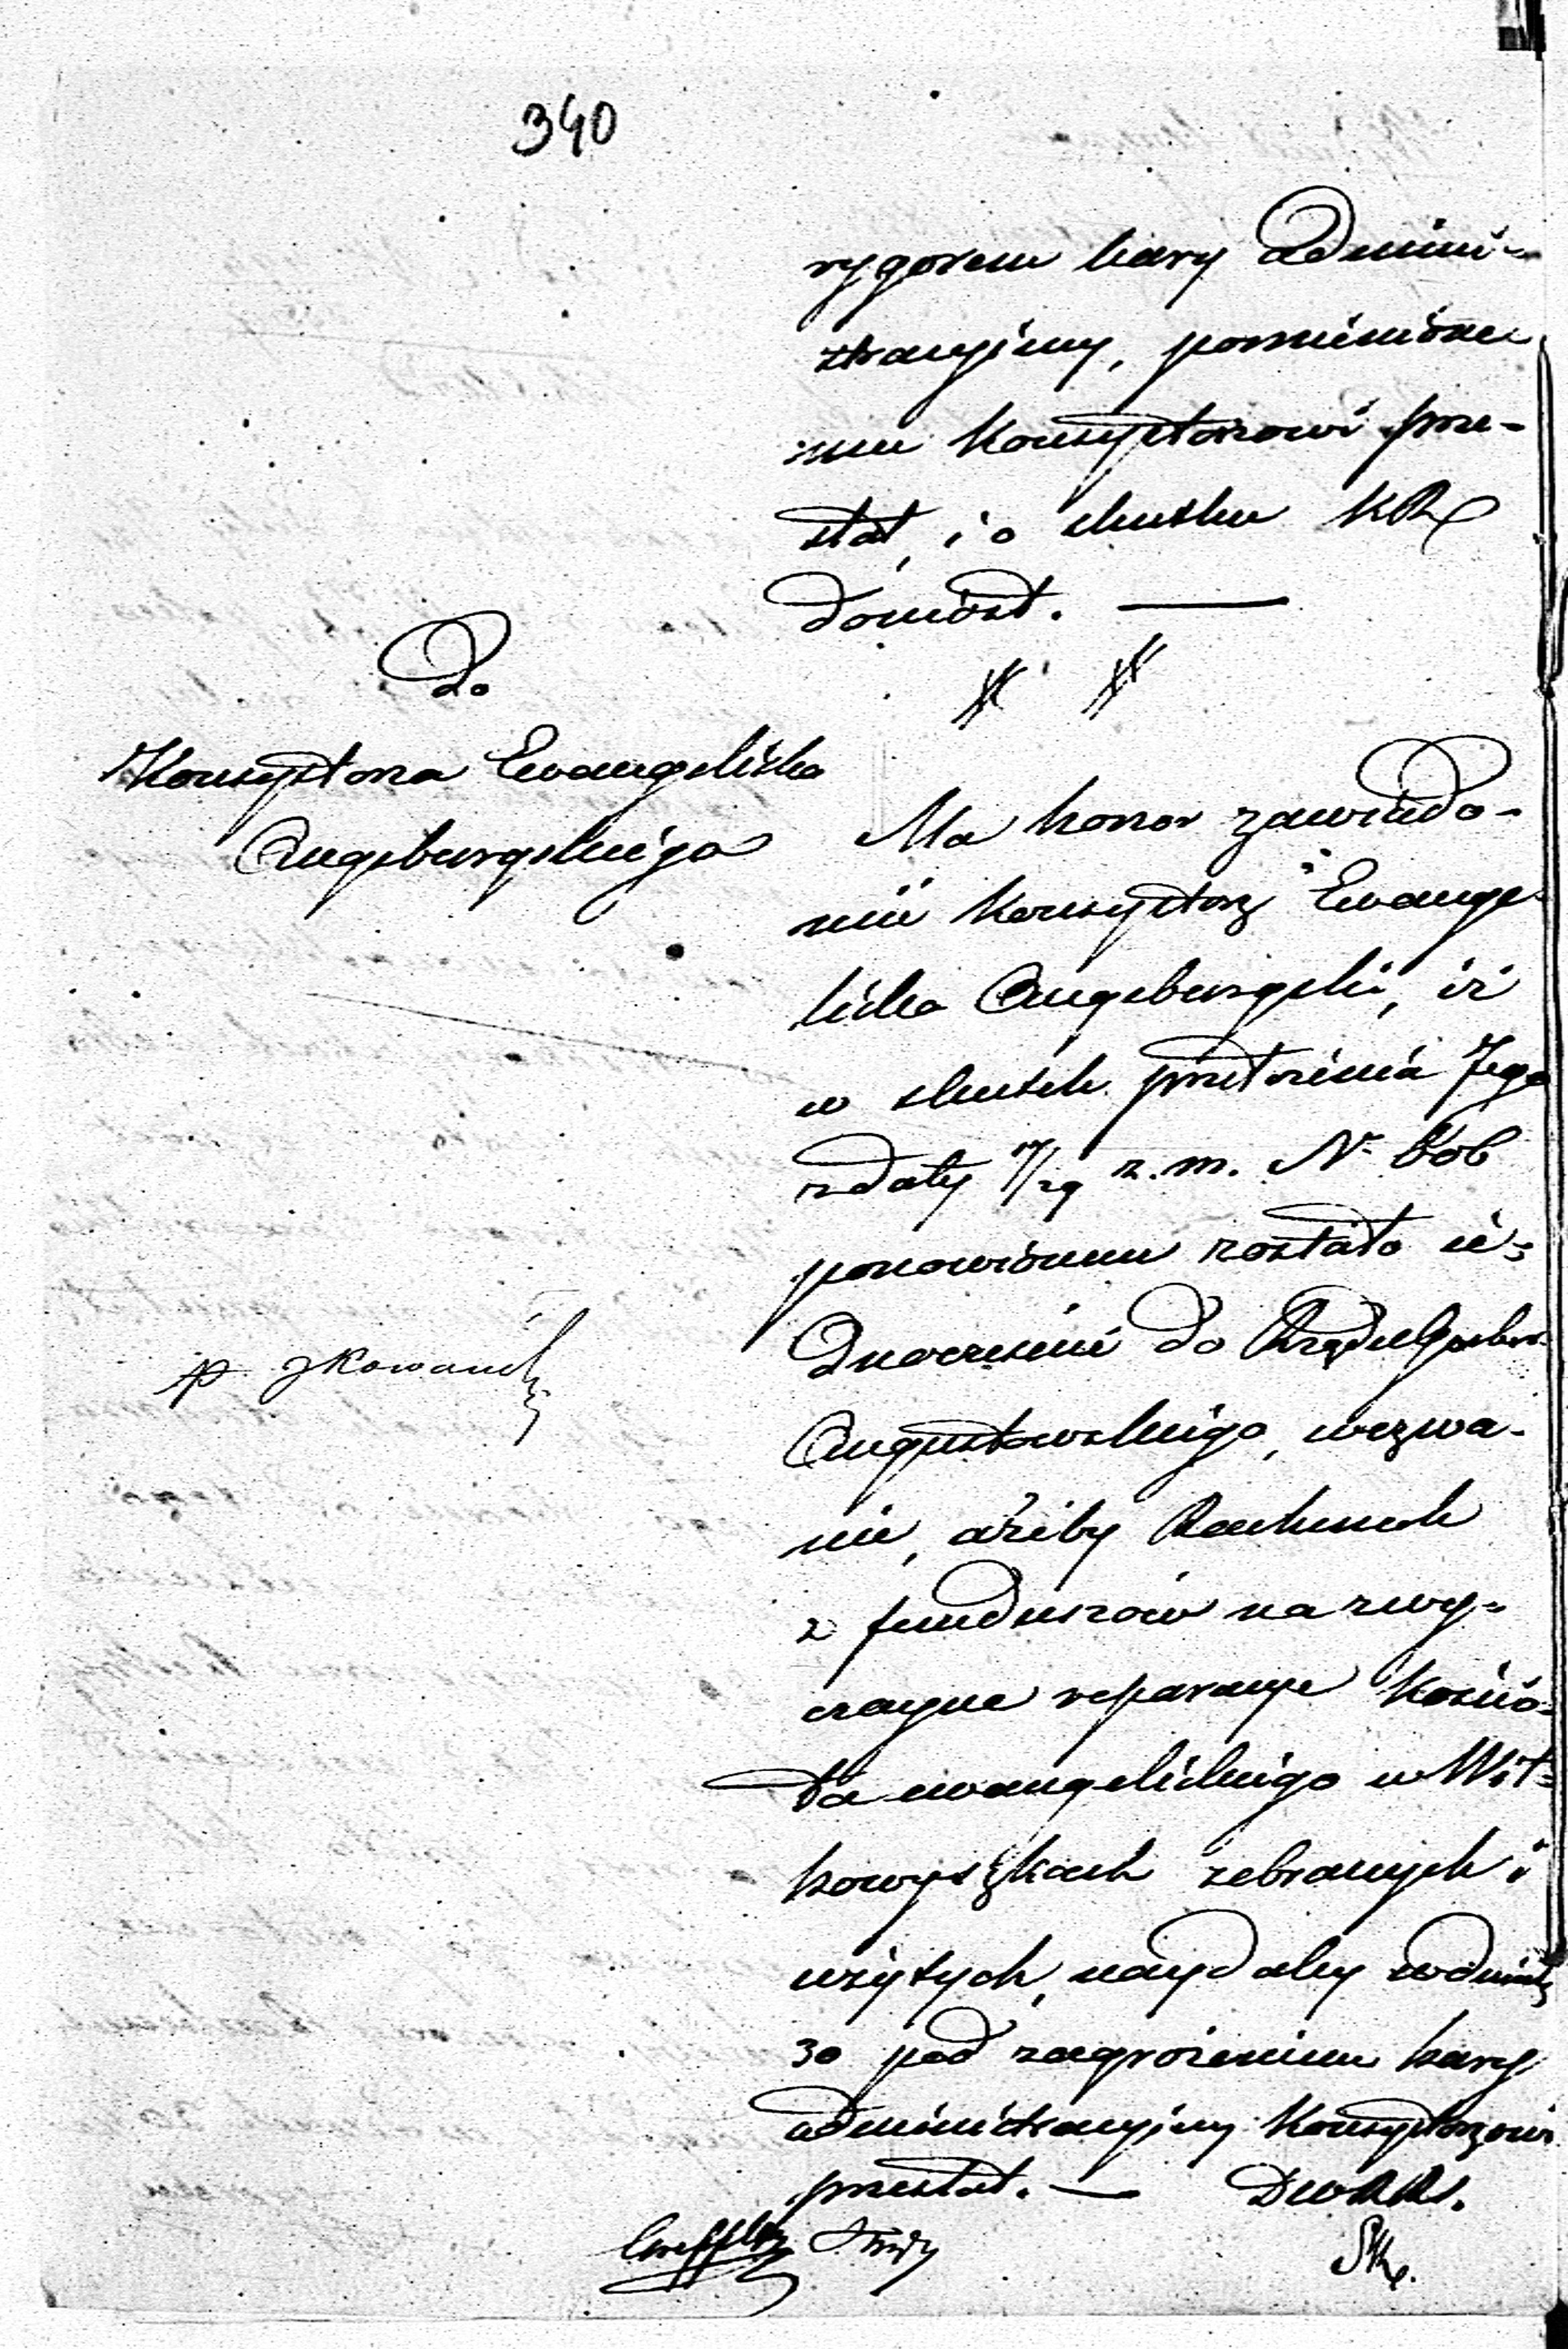 340
rygorem kary admini-
stracyjnej, pomienione-
mu Konsystorzowi prze-
słał, i o skutku KR
doniósł. —
Do
Konsystorza Ewangelicko
Augsburgskiego
Ma honor zawiado-
mić Konsystorz Ewange-
licko Augsburgski, iż
w skutek przełożenia Jego
z daty 17/29 z. m. N.
ponowionem zostało je-
dnocześnie do Rządu Gubern.
Augustowskiego, wezwa-
nie, ażeby Rachunek
z funduszów na zwy-
czayne reparacye Kościo-
ła ewangelickiego w Wił-
kowyszkach zebranych i
użytych, naydaley w dniach
30 pod zagrożeniem kary
administracyjney Konsystorzowi
przesłał. —